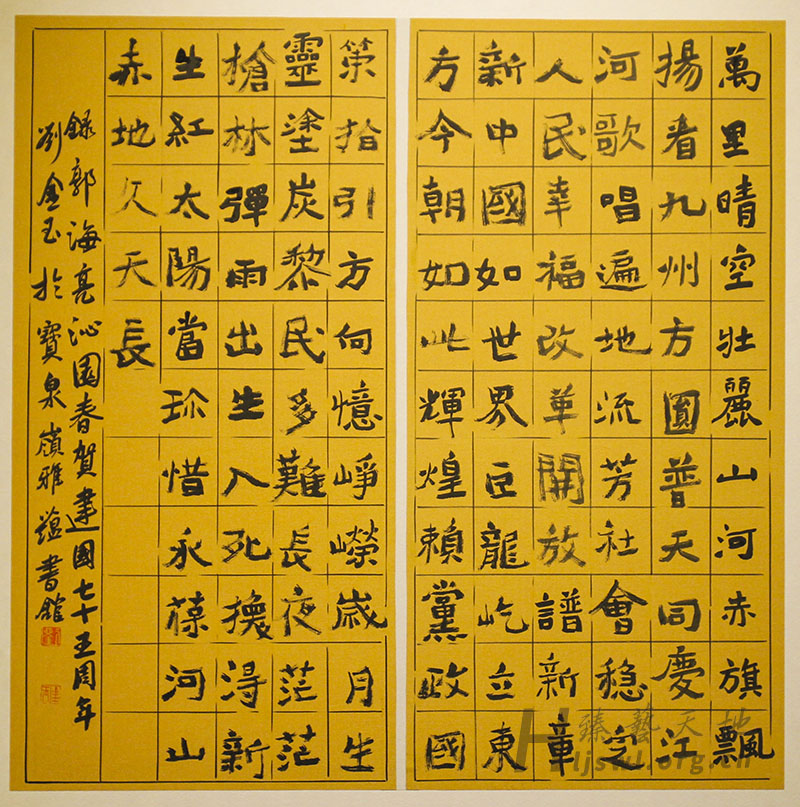 萬里晴空壯麗山河赤旗飄
揚看九州方圓普天同慶江
河歌唱遍地流芳社會穩定
人民幸福改革開放譜新章
新中國如世界巨龍屹立東
方今朝如此輝煌賴黨政國
策指引方向憶崢嶸歲月生
靈塗炭黎民多難長夜茫茫
槍林彈雨出生入死換得新
生紅太陽當珍惜永葆河山
赤地久天長
錄郭海亮沁園春賀建國七十五周年
劉金玉於寶泉嶺雅蘊書館
臻藝天地